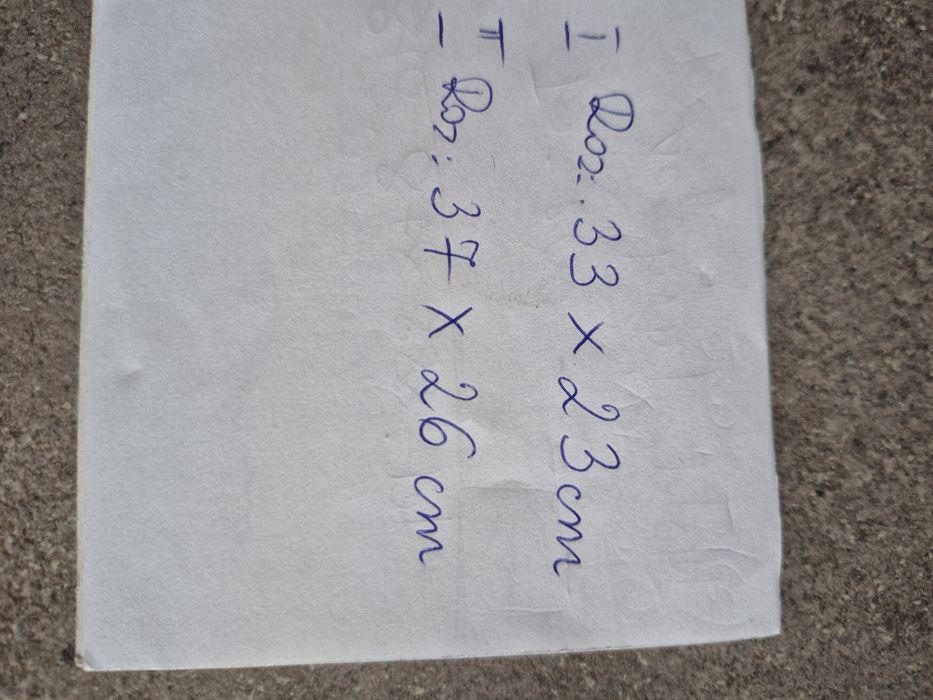 I Roz: 33 x 23 cm
II Roz: 37 x 26 cm